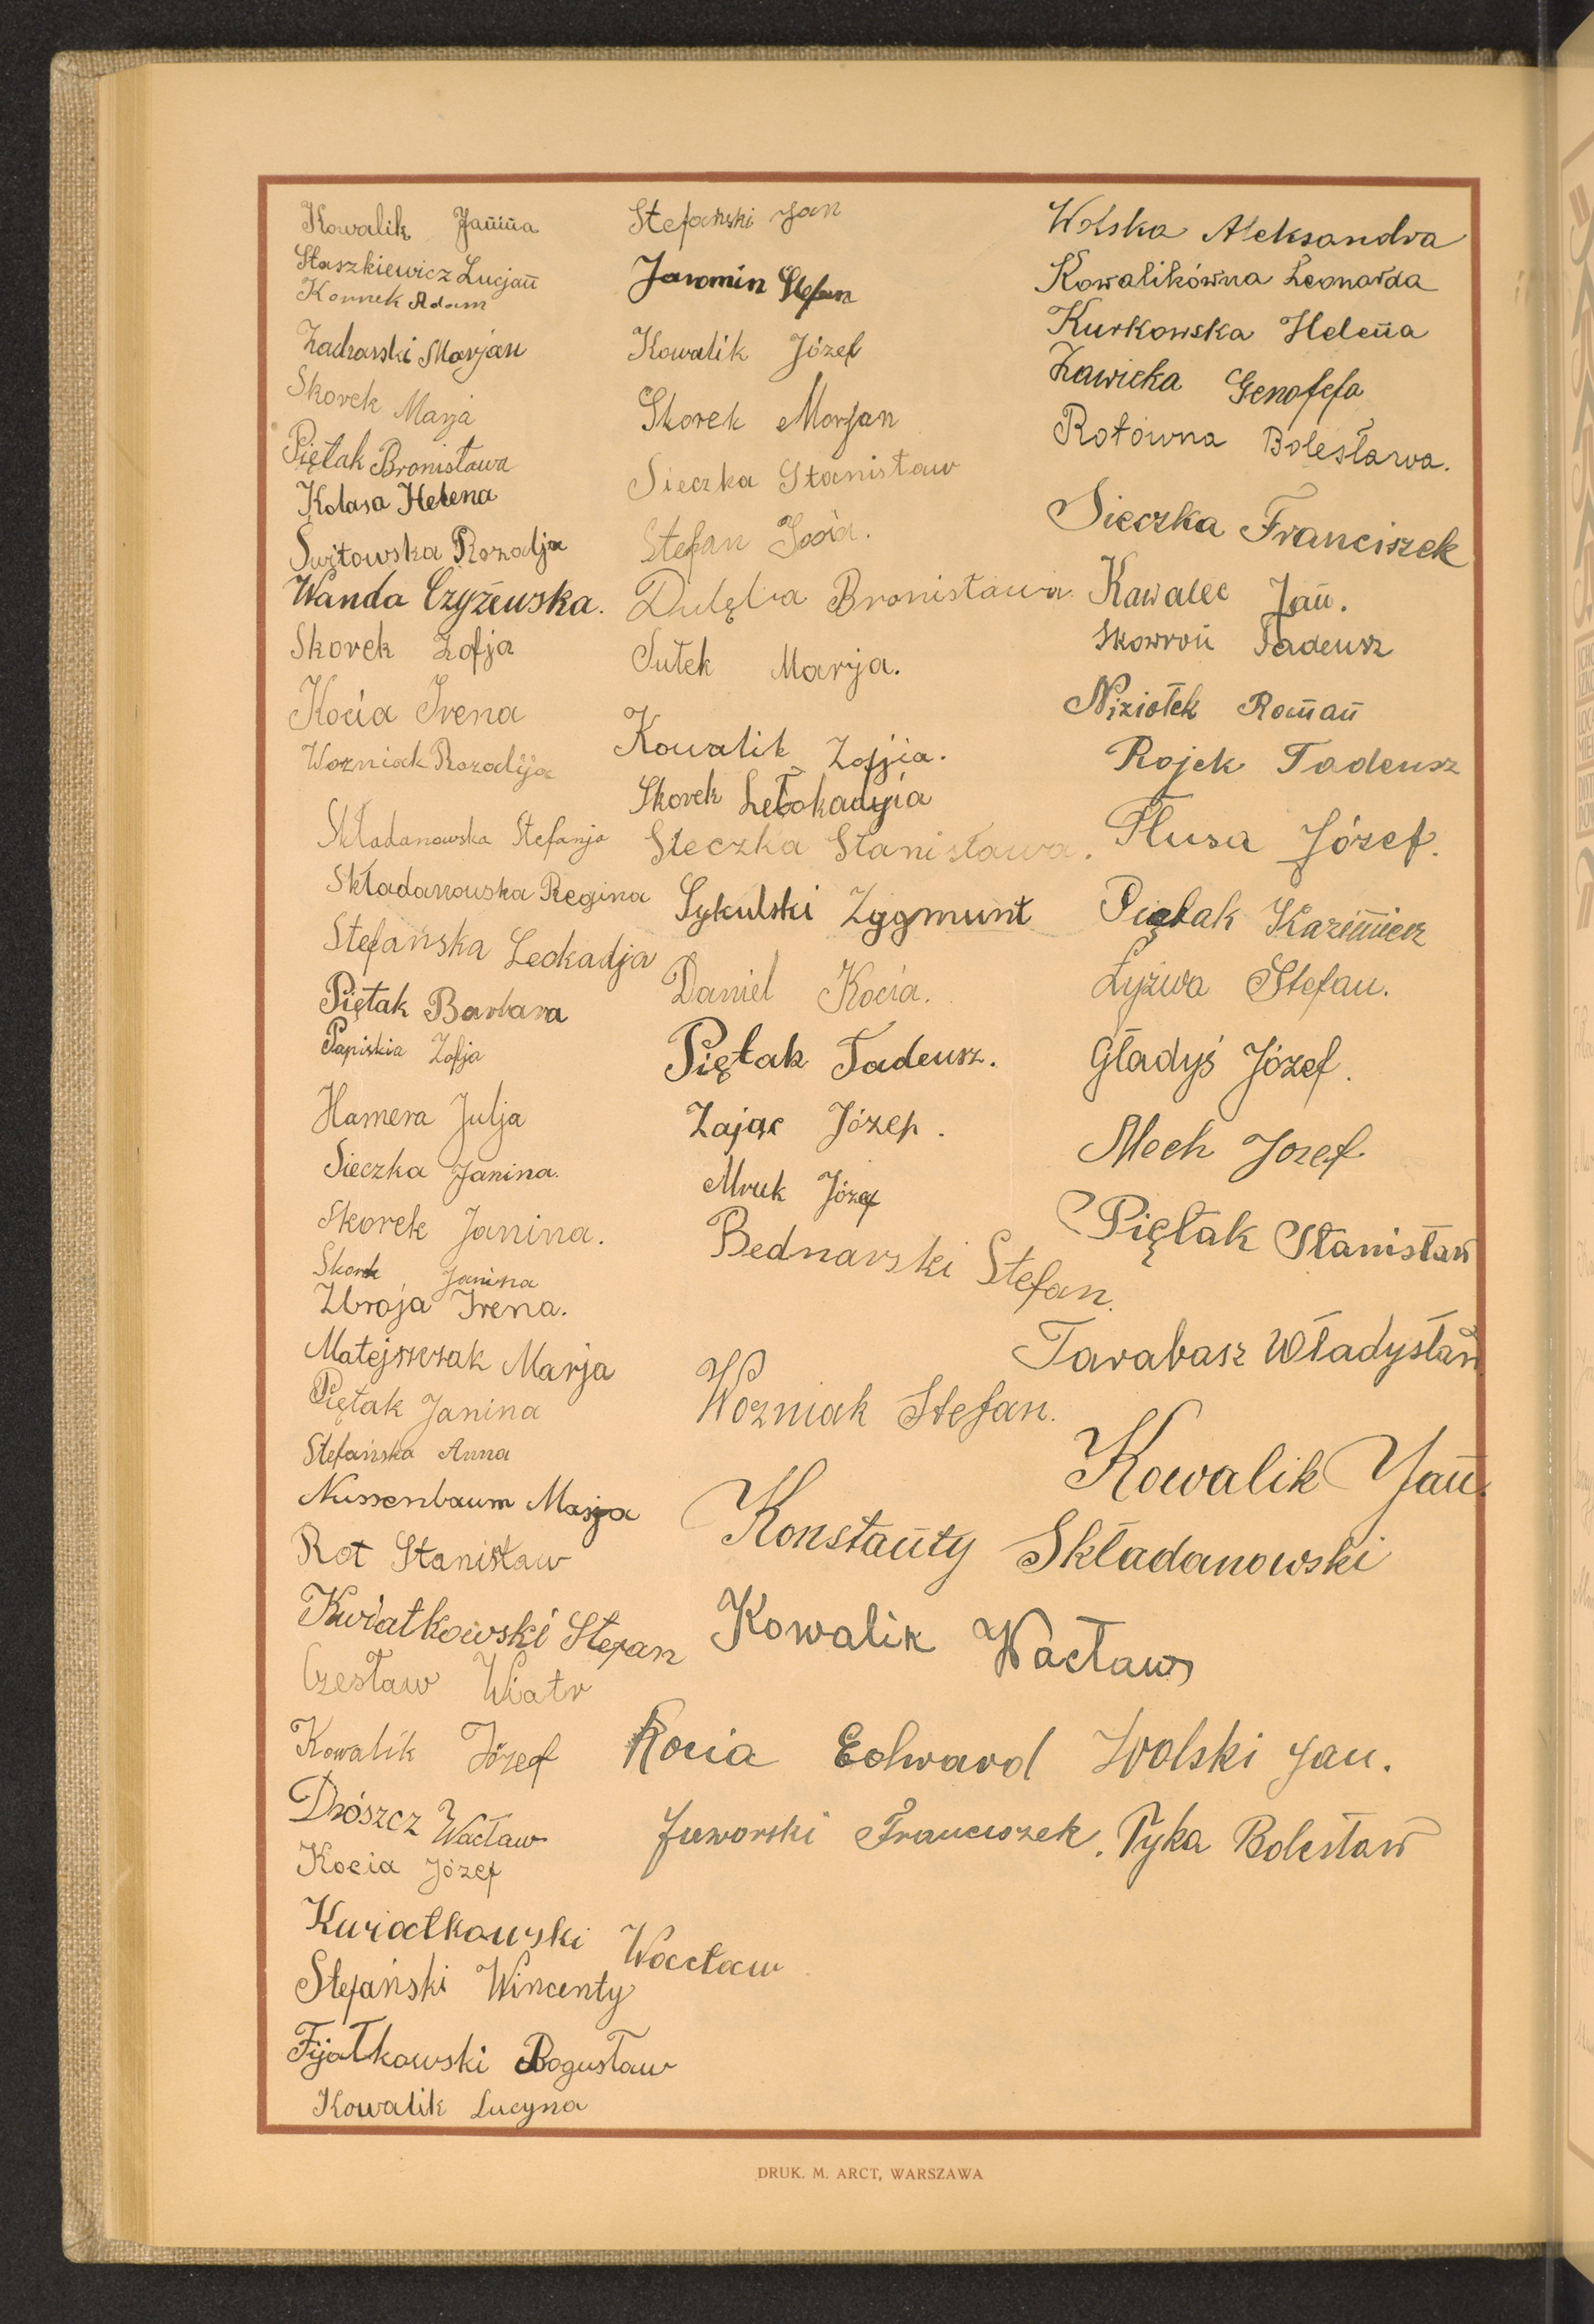 Kowalik Janina
Staszkiewicz Lucjan
Kornek Adam
Zadrawski Marjan
Skorek Marja
Piętak Bronisława
Kolasa Helena
Świtowska Rozalja
Wanda Czyżewska.
Skorek Zofja
Kocia Irena
Wozniak Rozalija
Składanowska Stefanja
Składanowska Regina
Stefańska Leokadja
Piętak Barbara
Papiskia Zofja
Hamera Julja
Sieczka Janina.
Skorek Janina.
Skorek Janina
Zbroja Irena.
Matejszczak Marja
Piętak Janina
Stefańska Anna
Nussenbaum Masja
Rot Stanisław
Kwiatkowski Stefan
Czesław Wiatr
Kowalik Józef
Drószcz Wacław
Kocia Józef
Kwiatkowski Wacław
Stefański Wincenty
Fijałkowski Bogusław
Kowalik Lucyna
Stefański Jan
Jaromin Stefan
Kowalik Józef
Skorek Marjan
Sieczka Stanisław
Stefan Kocia.
Dulęba Bronisława.
Sułek Marja.
Kowalik Zofjia.
Skorek Leokadyia
Sieczka Stanisława.
Sykulski Zygmunt
Daniel Kocia.
Piętak Tadeusz.
Zając Józef.
Mruk Józef
Bednarski Stefan.
Wozniak Stefan.
Konstanty Składanowski
Kowalik Wacław
Kocia Edward
Jaworski Franciszek.
Wolska Aleksandra
Kowalikówna Leonarda
Kurkowska Helena
Zawicka Genofefa
Rotówna Bolesława.
Sieczka Franciszek
Kawalec Jan.
Skowron Tadeusz
Niziołek Roman
Rojek Tadeusz
Tłusa Józef.
Piętak Kazimierz
Łyżwa Stefan.
Gładyś Józef.
Mech Jozef
Piętak Stanisław
Tarabasz Władysław
Kowalik Jan.
Wolski Jan.
Pyka Bolesław
DRUK. M. ARCT, WARSZAWA